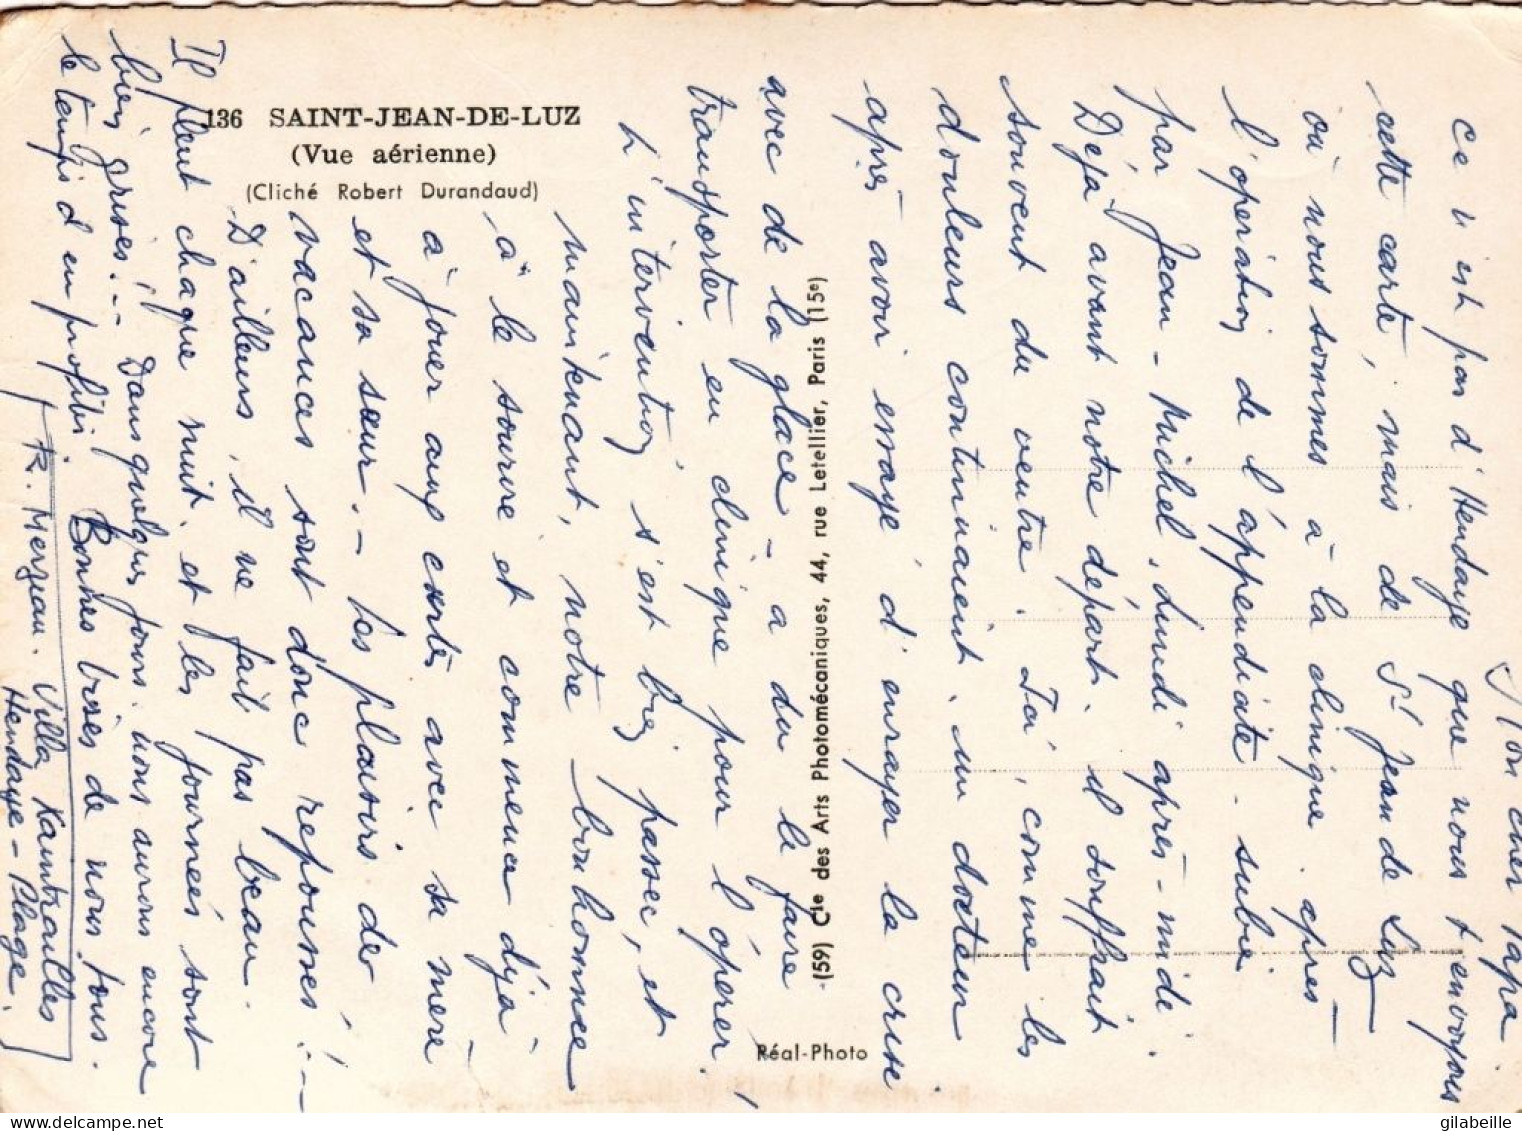 136 SAINT-JEAN-DE-LUZ
(Vue aérienne)
(Cliché Robert Durandaud)
(59) Cie des Arts Photomécaniques, 44, rue Letellier, Paris (15e)
Réal-Photo
Mon cher Papa
Ce n'est pas d'Hendaye que nous t'envoyons
cette carte, mais de St Jean de Luz
où nous sommes à la clinique. après
l'opération de l'appendicite subie
par Jean-Michel, Lundi après-midi.
Déjà avant notre départ. il souffrait
souvent du ventre. Ici, comme les
douleurs continuaient, un docteur
après avoir essayé d'enrayer la crise
avec de la glace - a du le faire
transporter en clinique pour l'opérer.
L'intervention s'est bien passée, et
maintenant, notre bonhomme
a le sourire et commence déjà
à jouer aux cartes avec sa mère
et sa sœur. - Les plaisirs des
vacances sont donc repoussés! -
D'ailleurs, il ne fait pas beau.
Il pleut chaque nuit, et les journées sont
bien grises! - Dans quelques jours, nous aurons encore
le temps d'en profiter Bonnes bises de nous tous.
R. Merzeau. Villa Xaintrailles
Hendaye-Plage.
gilabeille